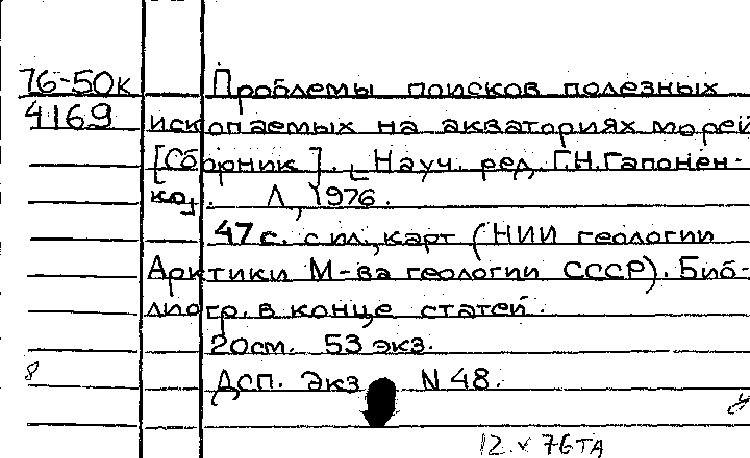 76-50к Проблемы поисков полезных
4169 ископаемых на акваториях морей
[Сборник]. [Науч. ред. Г.Н.Гапонен-
ко]. Л., 1976.
47 с. с ил., карт (НИИ геологии
Арктики М-ва геологии СССР). Биб-
лиогр. в конце статей.
20см. 53 экз.
8 Дсп. Экз N 48.
12.v 76 ТА